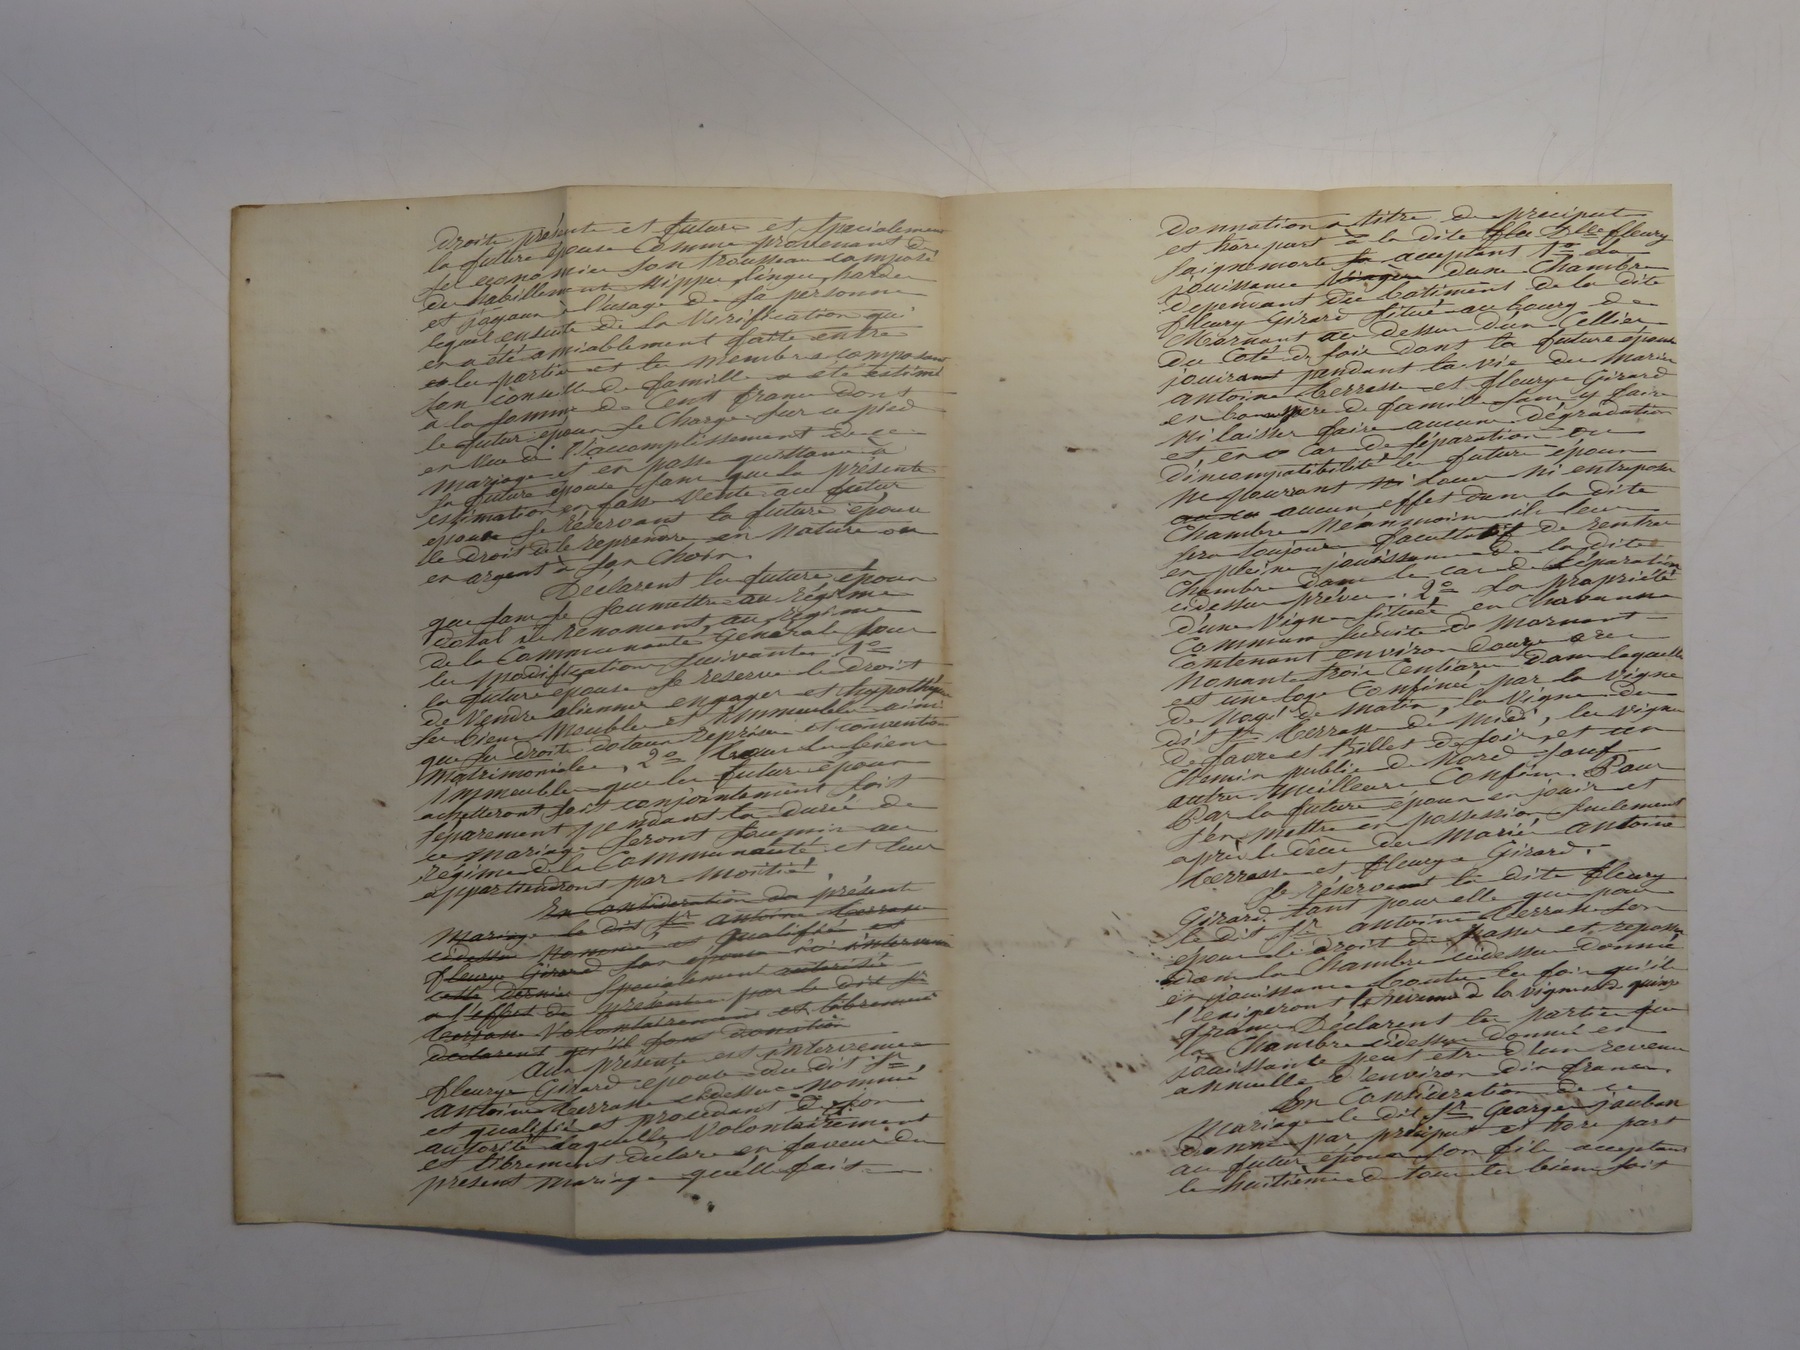 droits présente et future et specialement
la future épouse Comme provenant de
ses economies son trousseau composé
de habillement Nippes, linges, hardes
et joyaux à l'usage de sa personne
lequel ensuite de la Vérification qui
en a été amiablement faitte entre
les parties et les membres composant
son conseille de famille a été estimé
à la somme de Cent francs dont
le futur époux se Charge sur ce pied
en vue de l'accomplissement de ce
Mariage et en passe quittance à
la future épouse sans que la présente
estimation en fasse Vente au futur
époux se réservant la future épouse
le Droit de le reprendre en Nature ou
en argent à son Choix.
Déclarent les future époux
que sans se soumettre au régime
dotal ils renoncent au régime
de la Communauté Générale sous
les modification suivantes 1o
la future épouse se reserve le droit
de Vendre aliener engager et hypothéquer
ses biens Meubles et immeubles ainsi
que ses droits dotaux reprises et convention
Matrimoniales, 2o Tous les biens
immeubles que les future époux
achetteront soit conjointement soit
séparement pendant la durée de
ce mariage seront soumis au
régime de la Communauté et leur
appartiendront par Moitié.
En Considération du présent
Mariage le dit Sr antoine terrasse
cidessus Nommé et qualifié et
fleurye Girard son epouse ici intervenue
cette dernière specialement autorisée
a l'effet des présentes par le dit Sr
terrasse Volontairement et librement
déclarent qu'il font donation
Aux présente est intervenue
fleurye Girard epouse du dit Sr
antoine terrasse cidessus nommé
et qualifié et procedant de son
autorité laquelle Volontairement
et librement déclare en faveur du
présent Mariage qu'elle fait
Donnation a titre de preciput
et hors part à la dite Dlle fleury
Saignemorte acceptant 1o la
jouissance Viagère d'une Chambre
dependant du batiment de la dite
fleury Girard situé au bourg de
Mornant au dessus d'un Cellier
du Coté de soir dont la future épouse
jouira pendant la vie des Mariés
antoine terrasse et fleurye Girard
en bon père de famille sans y faire
Ni laisser faire aucune dégradation
et en Cas de séparation ou
d'incompatibilité les future époux
ne pourront louer Ni entreposer
aucun effet dans la dite
Chambre Néanmoins il leur
sera toujours facultatif de rentrer
en pleine jouissance de la dite
Chambre dans le cas de séparation
cidessus prévu. 2o la propriété
d'une Vigne située en Charvanne
Commune susdite de Mornant
Contenant environ douze ares
Nonante trois Centiares dans laquelle
est une loge Confinée par la Vigne
de Nagé de Matin, la Vigne de
dit Sr terrasse de Midi, les Vigne
de favre et Billet de soir, et un
Chemin public de Nord sauf
autres Meilleurs Confins. Pour
Par la future épouse en jouir et
s'en Mettre en possession seulement
après le décès des Mariés antoine
terrasse et fleurye Girard.
Se réservent la dite fleury
Girard, tant pour elle que pour
le dit Sr antoine terrasse son
époux le droit de passer et reposer
dans la Chambre cidessus donnée
en jouissance toutes les fois qu'ils
l'exigeront le revenu de la vigne est de quinze
francs Déclarent les parties que
la Chambre cidessus donnée en
jouissance peut etre d'un revenu
annuelle d'environ dix francs.
En Considération de ce
Mariage le dit Sr George jouban
donne par préciput et hors part
au futur époux son fils acceptant
le huitième de tous les biens soit